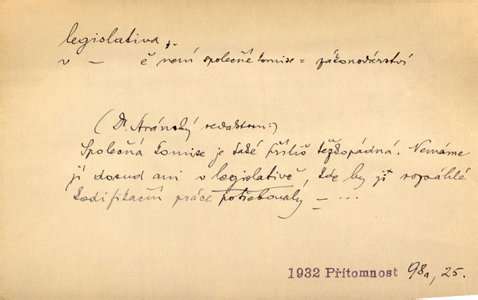 legislativa, f.
v – ě není společné komise = zákonodárství
(Dr. Stránský redaktem:)
Společná komise je také příliš těžkopádná. Nemáme
ji dosud ani v legislativě, kde by ji rozsáhlé
kodifikační práce potřebovaly – ...
1932 Přítomnost 98a, 25.